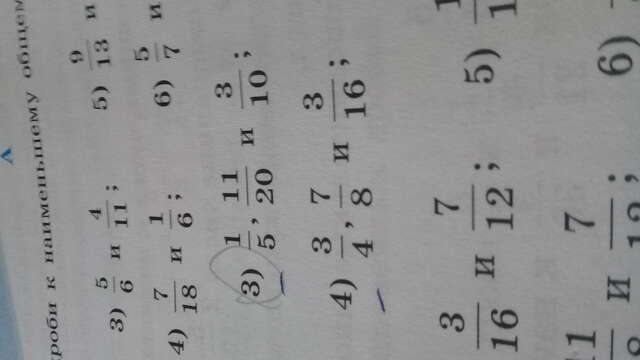 А
роби к наименьшему общем
3) 5/6 и 4/11; 5) 9/13 и
4) 7/18 и 1/6; 6) 5/7 и
3) 1/5, 11/20 и 3/10;
4) 3/4, 7/8 и 3/16;
3/16 и 7/12; 5)
и 7/12; 6)